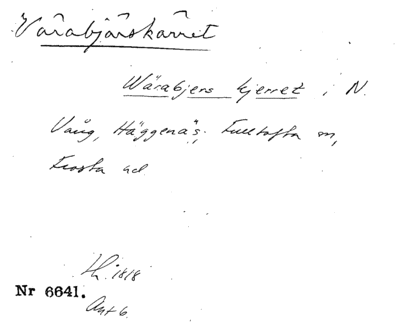 Värabjärskärret
Wärabjers kjerret, i N.
Vång, Häggenäs, Fulltofta sn,
Frosta hd
Lh. 1818
Nr 6641.
Akt 6.